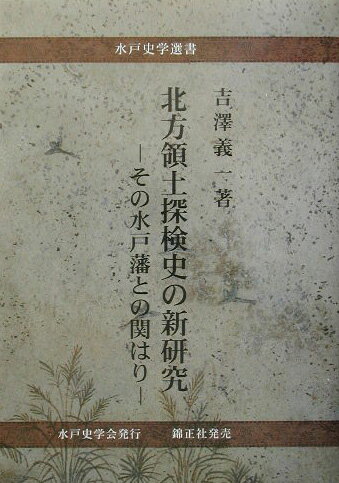 水戸史学選書
吉澤義一著
北方領土探検史の新研究
―その水戸藩との関はり―
水戸史学会発行 錦正社発売